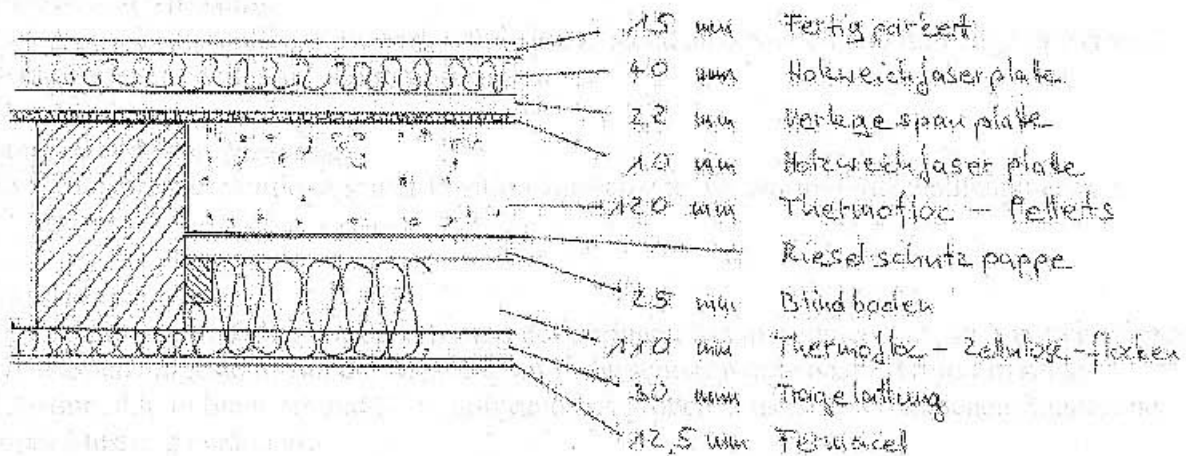 15 mm Fertigparkett
40 mm Holzweichfaserplatte
22 mm Verlegespanplatte
10 mm Holzweichfaserplatte
120 mm Thermofloc - Pellets
Rieselschutzpappe
25 mm Blindboden
110 mm Thermofloc - Zellulose-flocken
30 mm Tragelattung
12,5 mm Fermacel